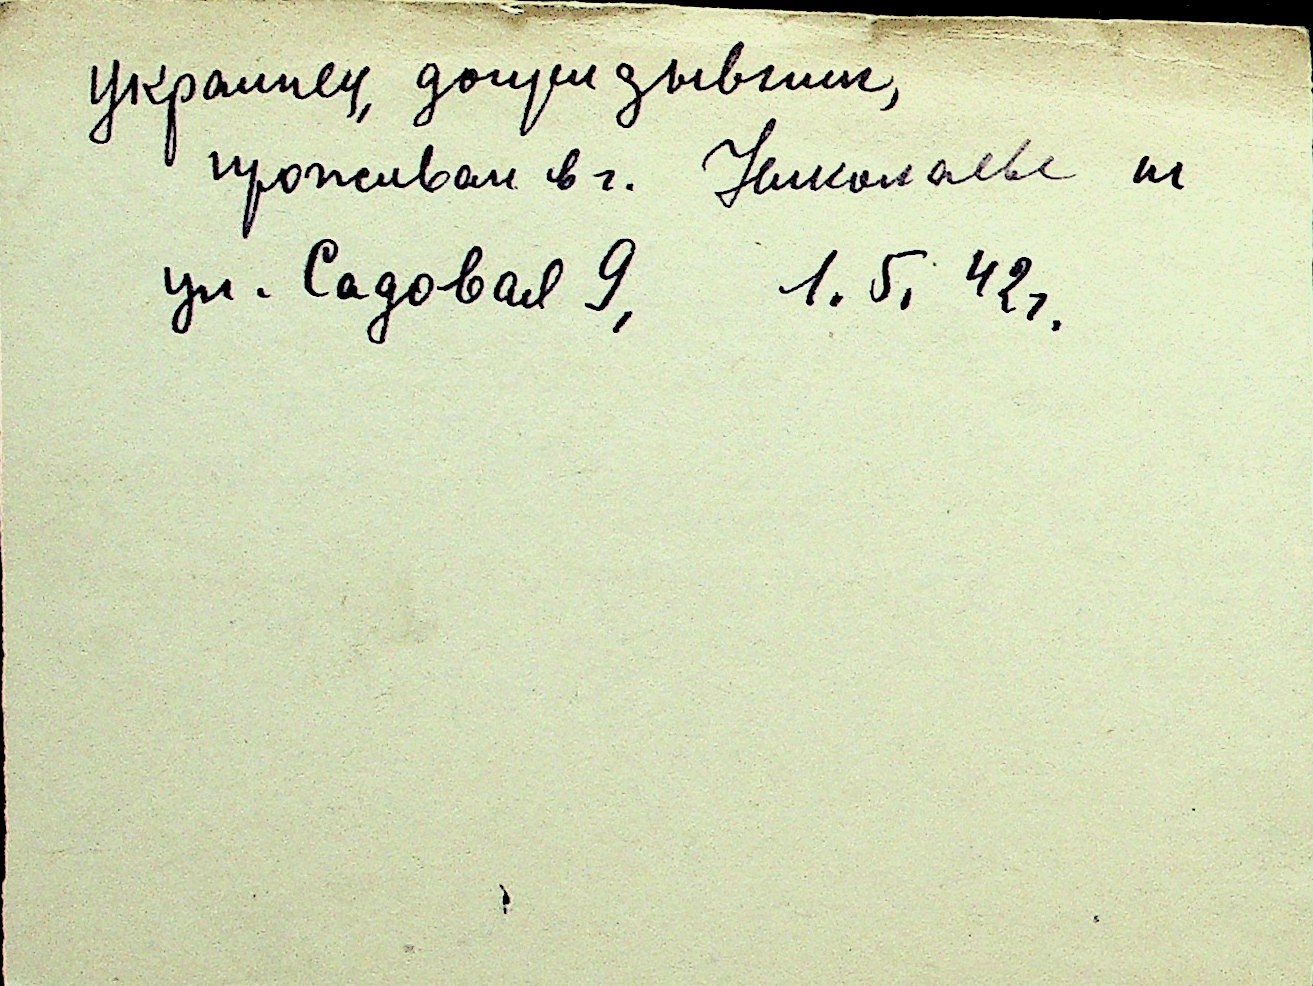 украинец, допризывник,
проживал в г. Николаеве по
ул. Садовая 9, 1. 5. 42г.